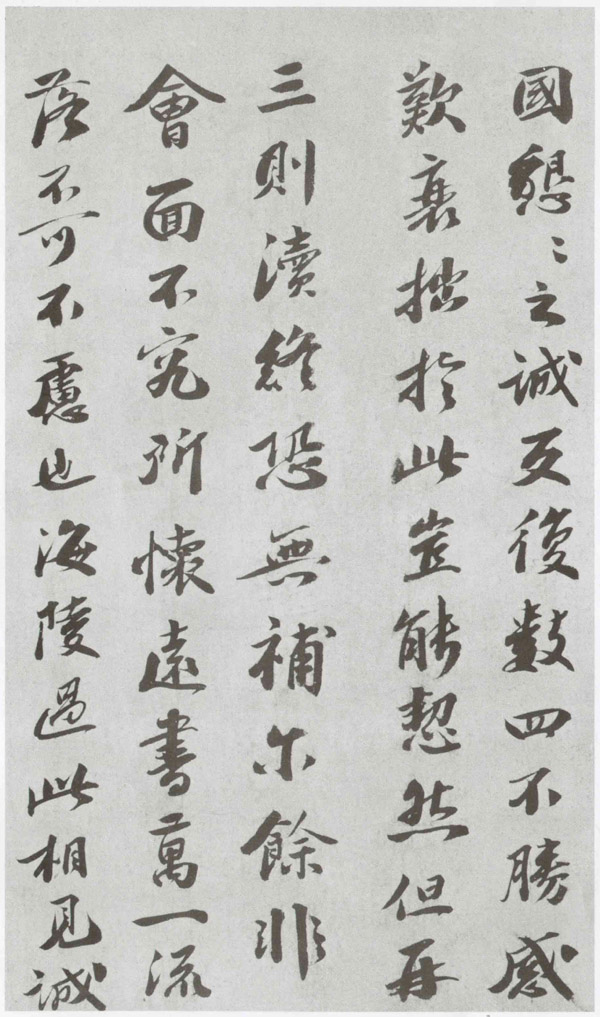 國懇〻之誠反復數四不勝感
歎衰拙於此豈能恝然但再
三則瀆終恐無補尔餘非
會面不究所懷遠書萬一流
落不可不慮也海陵過此相見誠